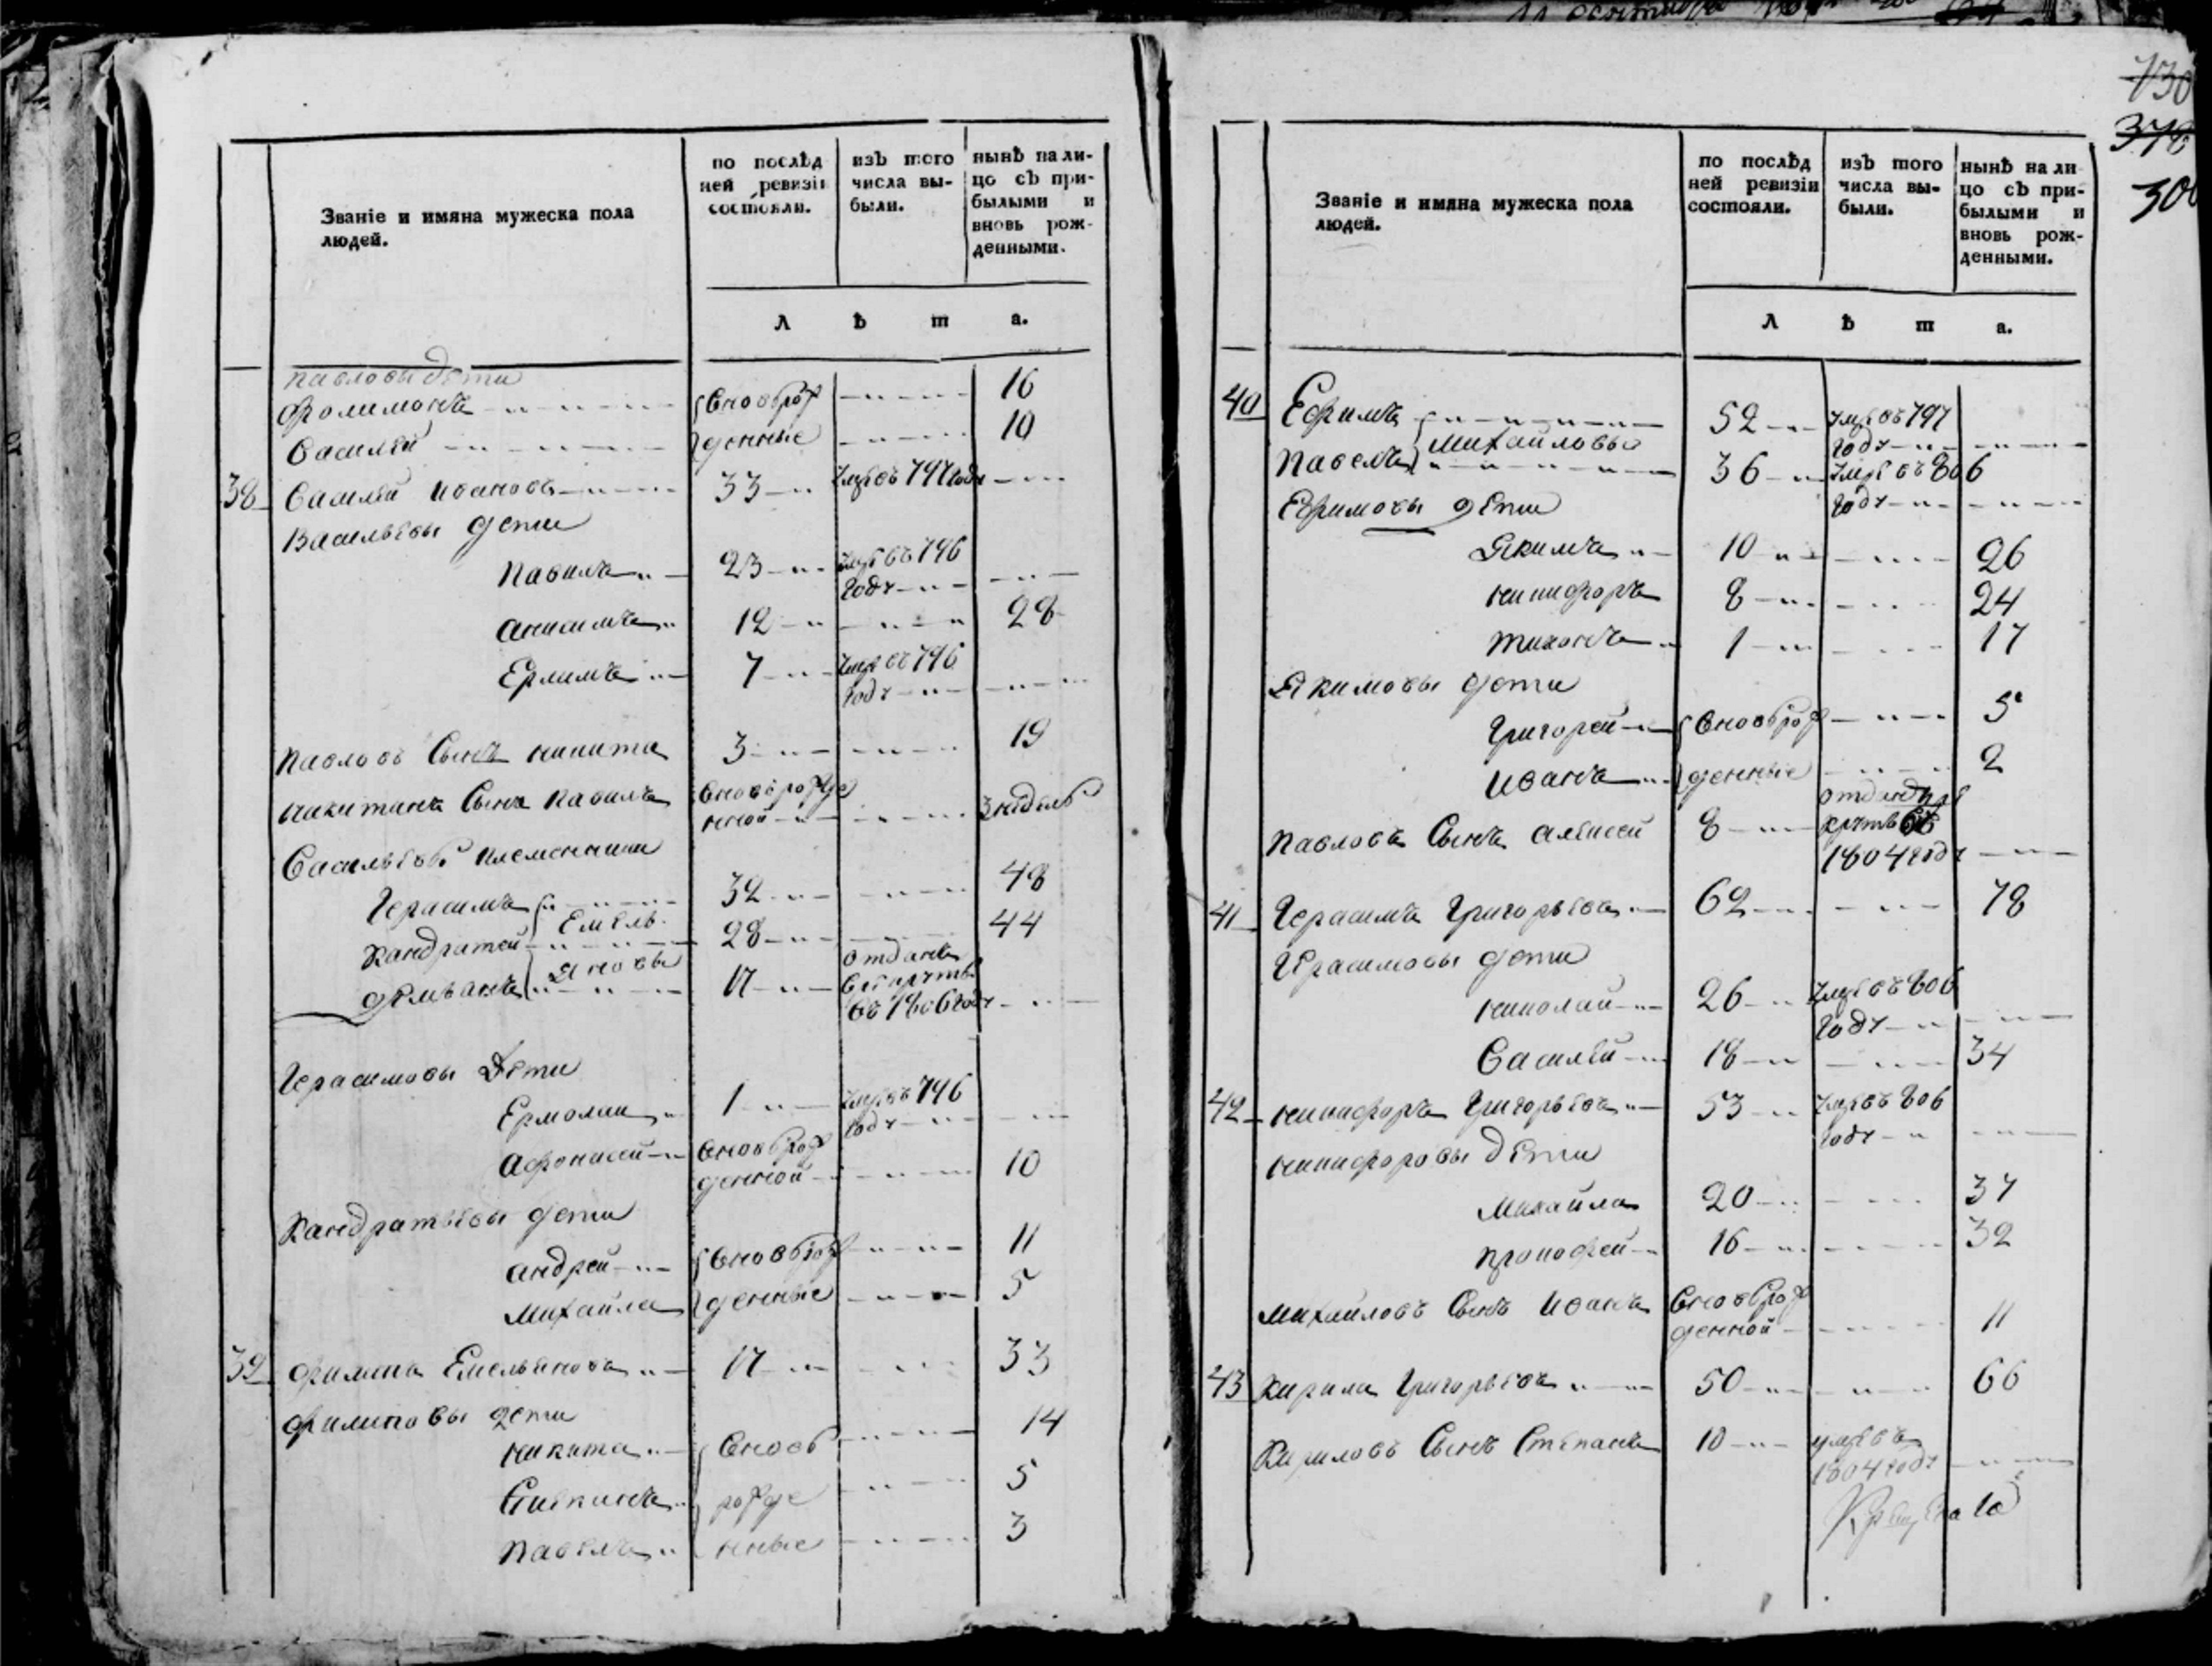 Званіе и имяна мужеска пола
людей.
по послѣд
ней ревизіи
состояли.
изъ того
числа вы-
были.
нынѣ на ли-
цо съ при-
былыми и
вновь рож-
денными.
Л ѣ т а.
Павловы дѣти
Фолимонъ 16
Василѣй 10
вновь рож
денные
38 Василѣй Ивановъ 33 умре въ 797 году
Васильевы дети
Павилъ 23 умре въ 796
году
Анисимъ 12 28
Ермилъ 7 умре въ 796
году
Павловъ сынъ Никита 3 19
Никитинъ сынъ Павилъ вновь рожде
нной 3 недель
Васильевы племянники
Герасимъ 32 48
Емель
Кандратей 28 44
яновы
Дѣмьянъ 17 отданъ
въ 1806 году
Герасимовы дѣти
Ермолаи 1 умре въ 796
году
Афонисей вновь рож
денной 10
Кандратьевы дети
Андрей вновь рож 11
Михайла денные 5
39 Филипъ Емельяновъ 17 33
Филиповы дети
Никита вновь 14
Степанъ рожде 5
Павелъ нные 3
730
378
300
Званіе и имяна мужеска пола
людей.
по послѣд
ней ревизіи
состояли.
изъ того
числа вы-
были.
нынѣ на ли
цо съ при-
былыми и
вновь рож-
денными.
Л ѣ т а.
40 Ефимъ 52 умре въ 797
году
Михайловы
Павелъ 36 умре въ 806
году
Ефимовы дѣти
Якимъ 10 26
Никифоръ 8 24
Тихонъ 1 17
Якимовы дети
Григорей вновь рож 5
Иванъ денные 2
Павловъ сынъ Алексей 8 отданъ
1804 году
41 Герасимъ Григорьевъ 62 78
Герасимовы дети
Николай 26 умре въ 806
году
Василѣй 18 34
42 Никифоръ Григорьевъ 53 умре въ 806
году
Никифоровы дѣти
Михайла 20 37
Прокофей 16 32
Михайловъ сынъ Иванъ вновь рож
денной 11
43 Кирила Григорьевъ 50 66
Кириловъ сынъ Степанъ 10 умре въ
1804 году